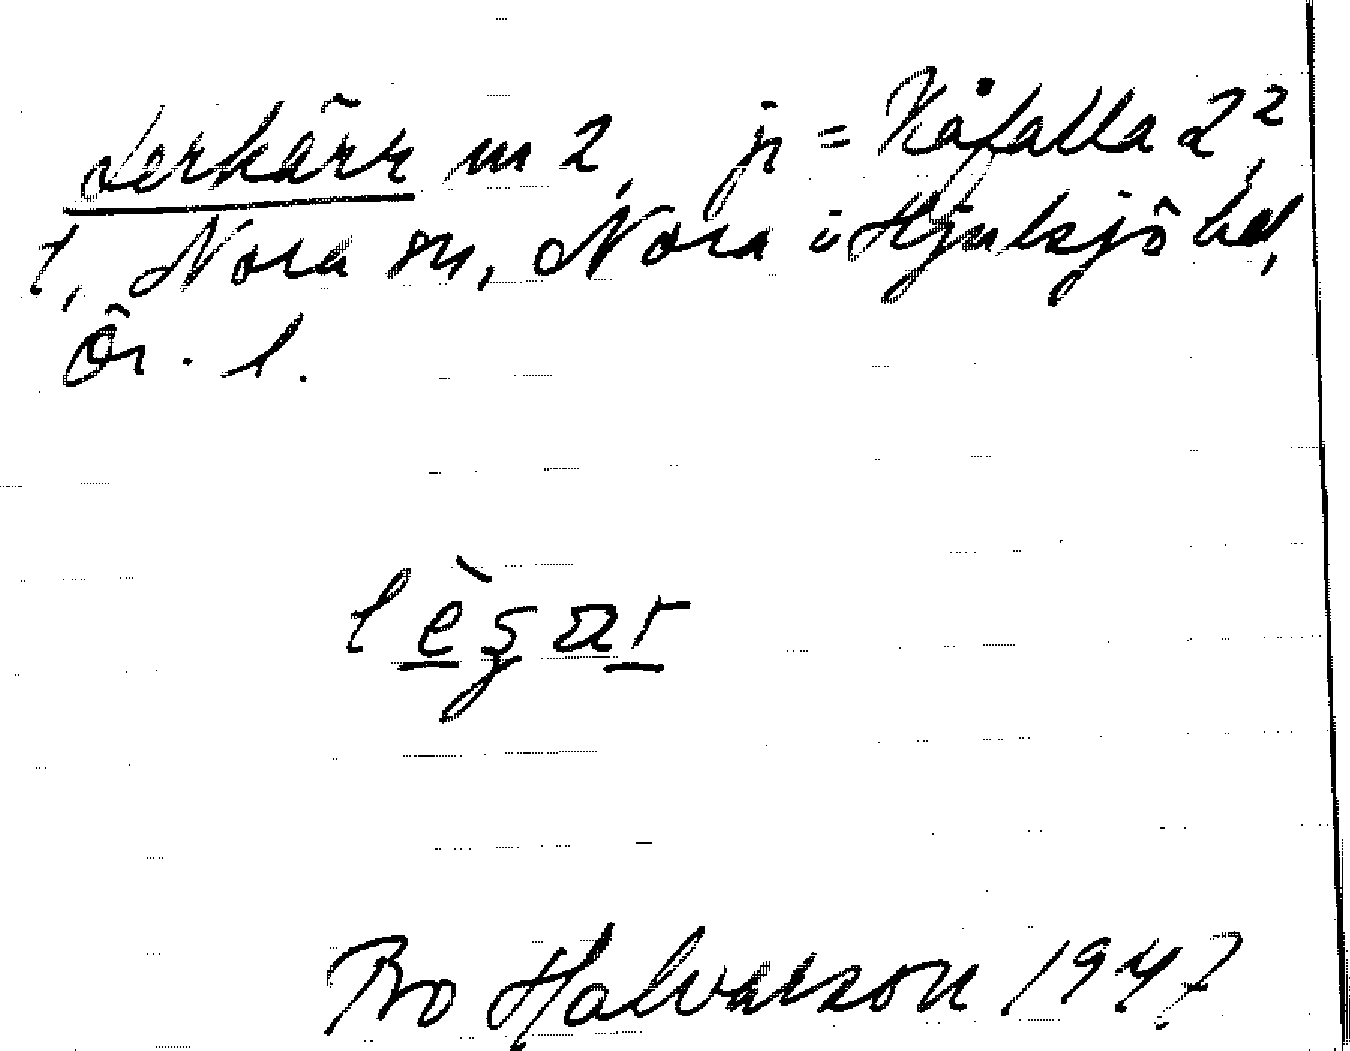 Lerkärr m 2, jr = Kåfalla 2²,
t, Nora sn, Nora o Hjulsjö hd,
Ör. l.
lègar
Bo Halvarson 1947